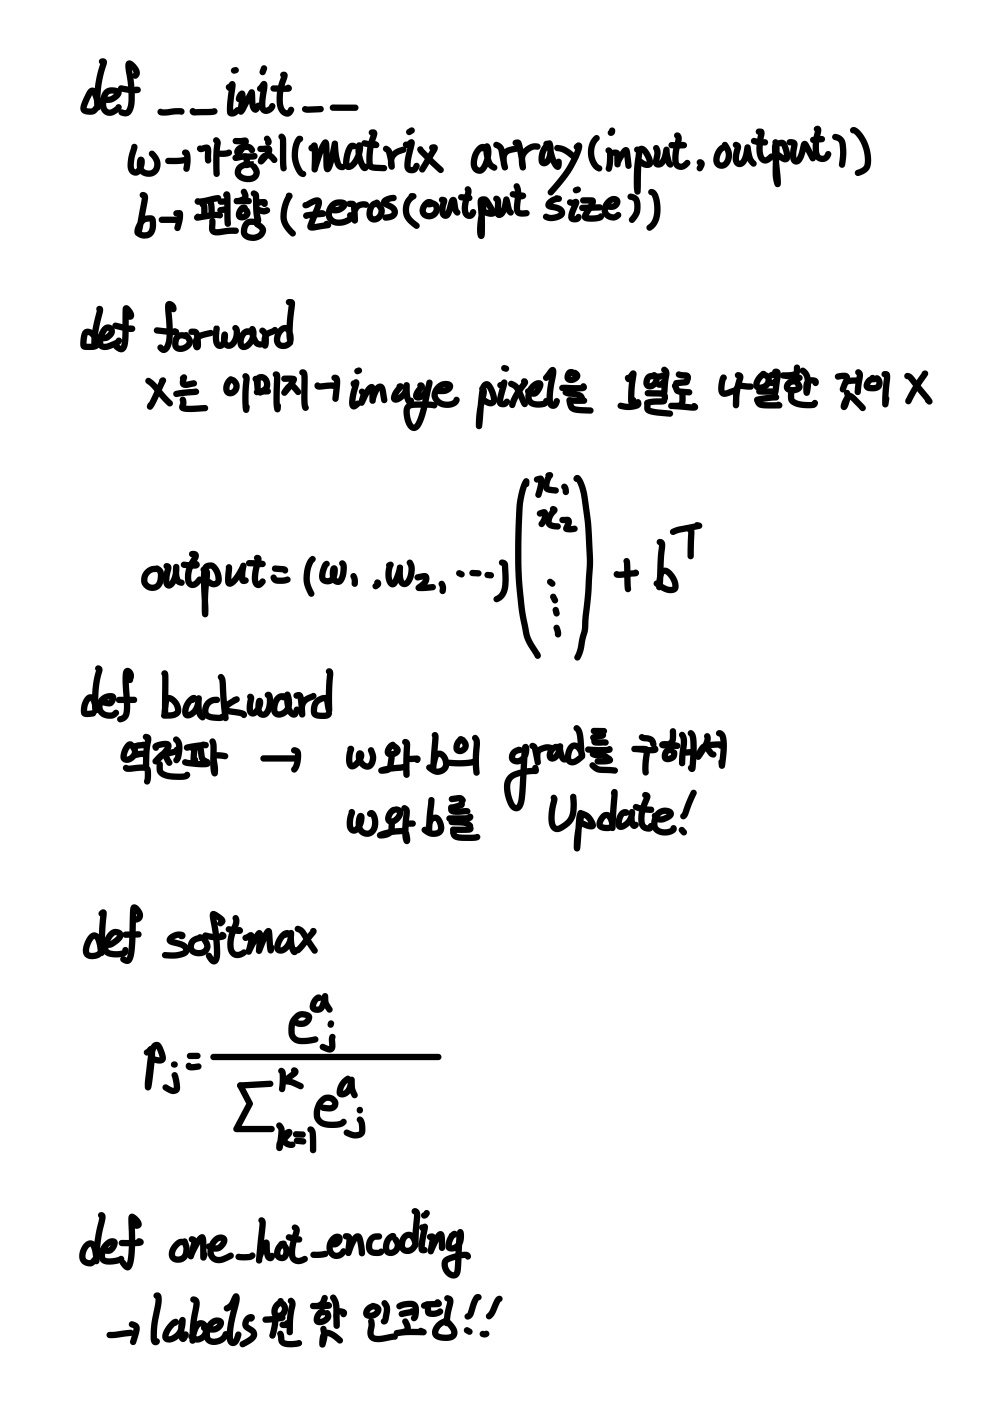 def __init__
w→가중치(matrix array(input, output))
b→ 편향 (zeros(output size))
def forward
X는 이미지→image pixel을 1열로 나열한 것이 X
output = (w₁, w₂, ...) (x₁ x₂ ⋮) + bᵀ
def backward
역전파 → w와 b의 grad를 구해서
w와 b를 Update!
def softmax
p_j = e^a_j / ∑_{k=1}^{K} e^a_j
def one_hot_encoding
→ labels 원 핫 인코딩!!